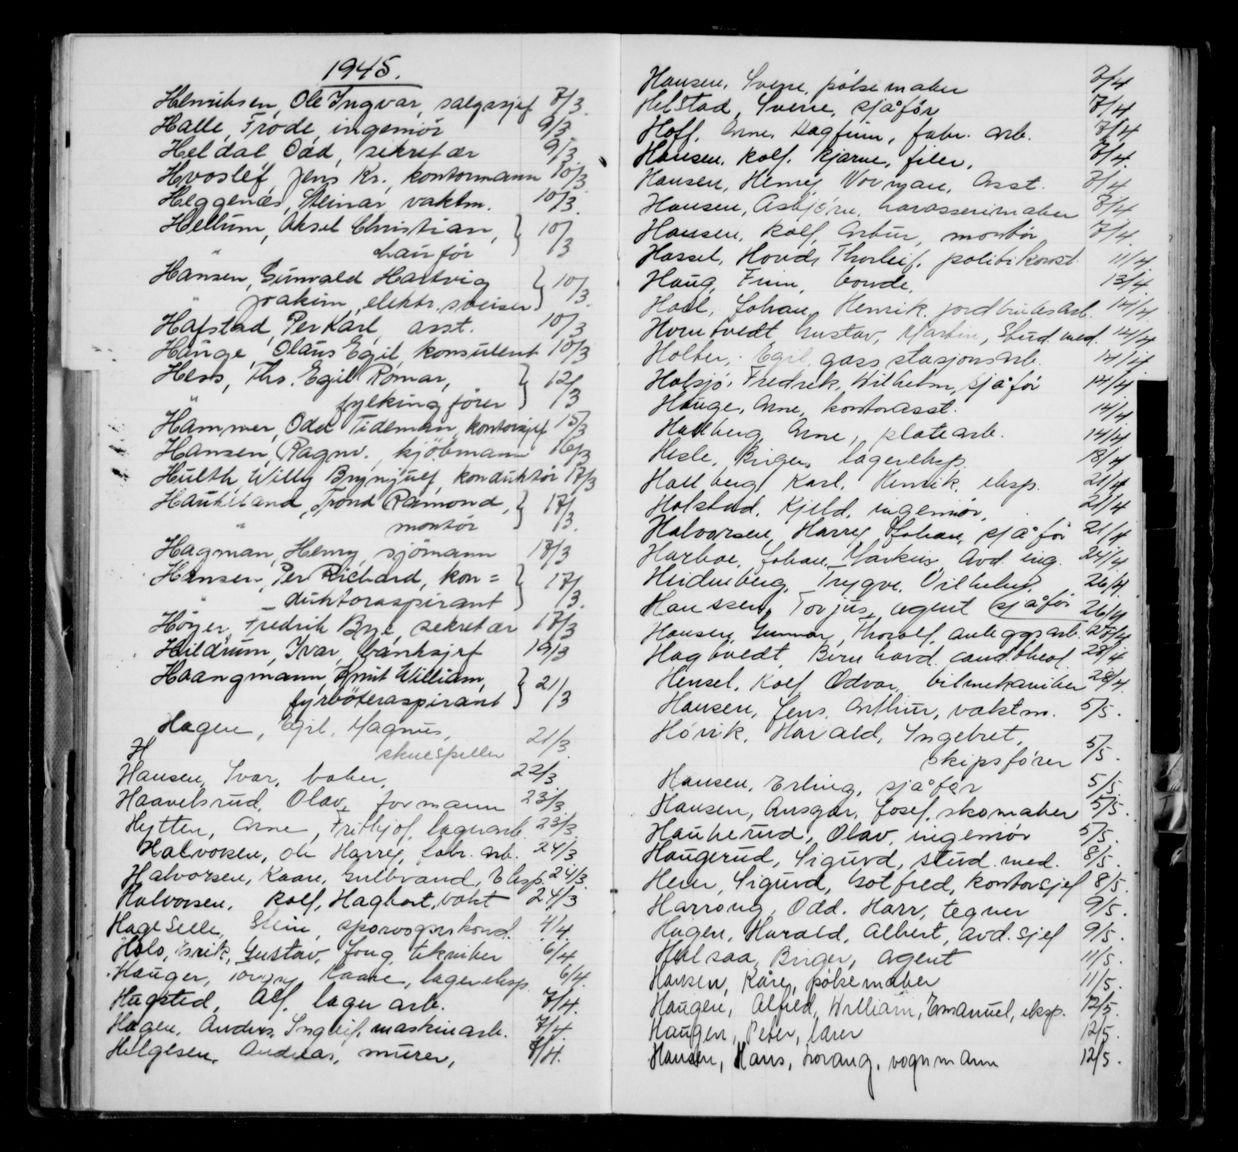 1945.
Henriksen, Ole Ingvar, salgssjef 7/3
Halle, Frode, ingeniør 9/3
Heldal, Odd, sekretær 9/3
Hvoslef, Jens Kr., kontormann 10/3
Heggenæs, Steinar vaktm. 10/3
Hellum, Aksel Christian, 10/3
" sauför
Hansen, Gunvald Hartvig 10/3
" Joakim, elektr. sveiser
Hafstad, Per Karl, asst. 10/3
Hauge, Olaus Egil, konsulent 10/3
Hess, Ths. Egil Romar, 12/3
" fylkingfører
Hammer, Odd Tidemann, kontorsjef 15/3
Hansen, Ragnv., kjöbmann 16/3
Hulth, Willy Brynjulf, konduktör 17/3
Haukeland, Trond Ramond, 17/3
" montör
Hagman, Henry, sjömann 17/3
Hansen, Per Richard, kon= 17/3
" duktoraspirant
Höyer, Fredrik Bye, sekretær 17/3
Hildrum, Ivar, banksjef 19/3
Haangmann, Knut William, 21/3
fyrböteraspirant
Hagen, Egil, Magnus, 21/3
skuespiller
H
Hansen, Ivar, baker, 22/3
Haavelsrud, Olav, formann 23/3
Hytten, Arne, Frithjof, lagerarb. 23/3
Halvorsen, Ole Harry, fabr. arb. 24/3
Halvorsen, Kaare, Gulbrand, Eksp. 24/3
Halvorsen, Rolf, Hagbart, vakt 24/3
Hageselle, Stein, sporvognskond. 4/4
Holo, Erik, Gustav, Tong. tekniker 6/4
Hauger, Kaare, lagereksp. 6/4
Hugsted, Alf, lager arb. 7/4
Hagen, Anders, Ingleif, maskinarb. 7/4
Helgesen, Andreas, murer, 7/4
Hansen, Sverre, pølsemaker 7/4
Helstad, Sverre, sjåför 7/4
Hoff, Arne, Dagfinn, fabr. arb. 7/4
Hansen, Rolf, Bjarne, filer, 7/4
Hansen, Henry Norman, Asst. 7/4
Hansen, Asbjörn, karosserimaker 7/4
Hansen, Rolf, Artur, montör 7/4
Hassel, Hovds Thorleif, politikonst. 11/4
Haug, Finn, bonde, 13/4
Hoel, Johan, Henrik, jordbruksarb. 14/4
Horntvedt Gustav, Martin, Stud. med. 14/4
Holter, Egil, gass stasjonsarb. 14/4
Holsjö, Fredrik, Wilhelm, sjåför 14/4
Hauge, Arne, kontorasst. 14/4
Hallberg, Arne, platearb. 14/4
Hesle, Birger, lagereksp. 18/4
Hallberg, Karl, Henrik, eksp. 21/4
Hofstad, Kjeld, ingeniør, 21/4
Halvorsen, Harry Johan, sjåför 21/4
Harboe, Johan Markus, Avd. ing. 24/4
Heidenberg, Trygve, Vilhelm, 26/4
Hanssen, Torjus, agent sjåför 26/4
Hansen, Gunnar, Thoralf, anleggsarb. 28/4
Hagtvedt, Bernhard, cand. theol. 28/4
Hensel, Rolf Odvar, bilmekaniker 28/4
Hansen, Jens, Arthur, vaktm. 5/5.
Hövik, Harald, Ingebret, 5/5.
skipsfører
Hansen, Erling, sjåför 5/5.
Hansen, Ansgar, Josef, skomaker 5/5.
Haukerud, Olav, ingeniør 5/5.
Haugerud, Sigurd, stud. med. 8/5.
Heier, Sigurd, Gotfred, kontorsjef 8/5.
Harroug, Odd. Harr, tegner 9/5.
Hagen, Harald, Albert, avd. sjef 9/5.
Halsaa, Birger, agent 11/5.
Hansen, Kåre, pølsemaker 11/5.
Haugen, Alfred, William, Emanuel, eksp. 12/5.
Haugen, Peter, lærer 12/5.
Hansen, Hans, Lorang, vognmann 12/5.